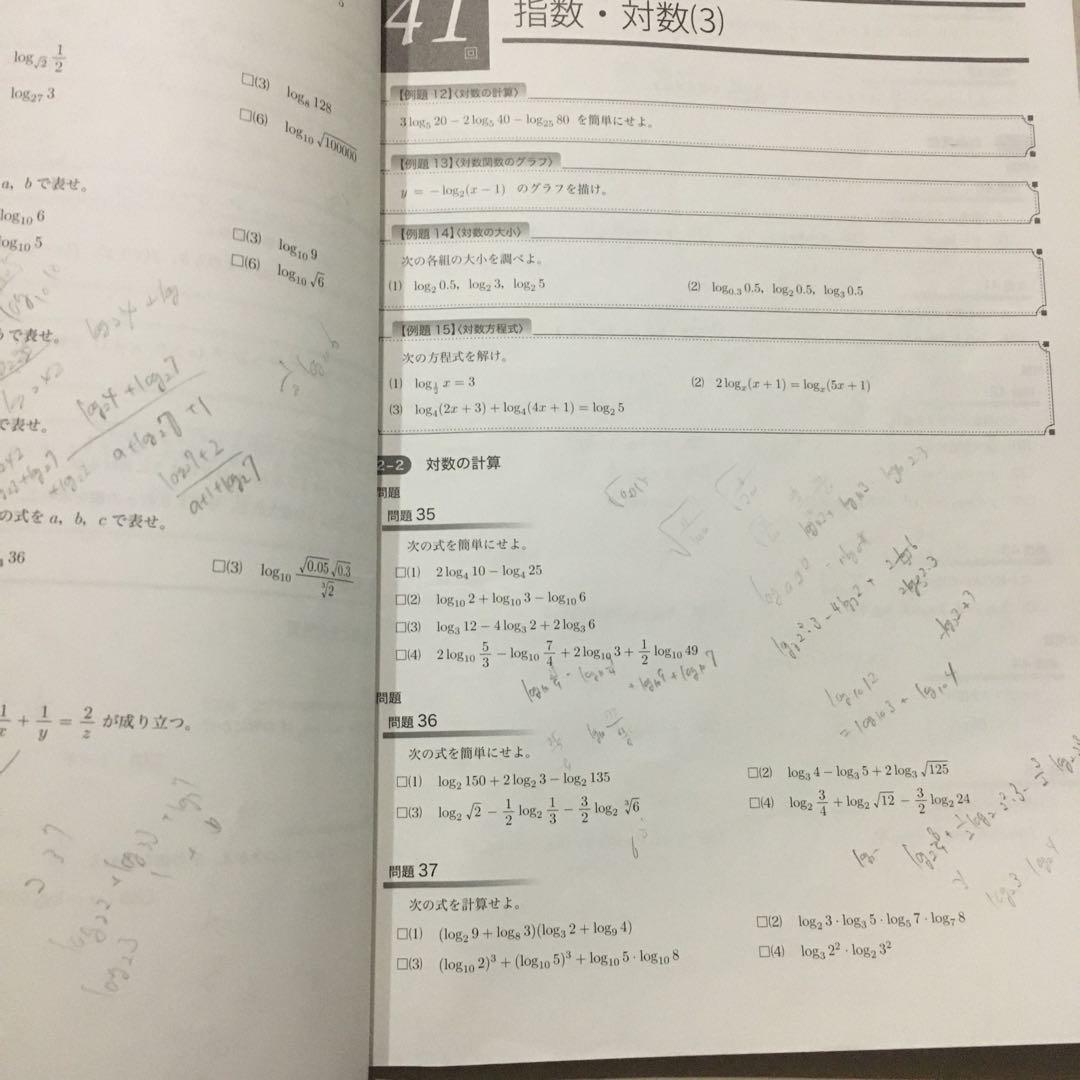 log_{√2} 1/2
□(3) log_8 128
log_{27} 3
□(6) log_{10} √100000
a, b で表せ。
log_{10} 6
□(3) log_{10} 9
log_{10} 5
□(6) log_{10} √6
で表せ。
log_2 4 + log_2 7
a + log_2 7 + 1
log_2 7 + 2
a+1+log_2 7
で表せ。
の式を a, b, c で表せ。
36
□(3) log_{10} √0.05 √0.3 / ∛2
1/x + 1/y = 2/z が成り立つ。
41
回
指数・対数(3)
【例題 12】〈対数の計算〉
3 log_5 20 − 2 log_5 40 − log_{25} 80 を簡単にせよ。
【例題 13】〈対数関数のグラフ〉
y = − log_2(x − 1) のグラフを描け。
【例題 14】〈対数の大小〉
次の各組の大小を調べよ。
(1) log_2 0.5, log_2 3, log_2 5 (2) log_{0.3} 0.5, log_2 0.5, log_3 0.5
【例題 15】〈対数方程式〉
次の方程式を解け。
(1) log_{1/2} x = 3 (2) 2 log_x(x + 1) = log_x(5x + 1)
(3) log_4(2x + 3) + log_4(4x + 1) = log_2 5
2-2 対数の計算
問題
問題 35
次の式を簡単にせよ。
□(1) 2 log_4 10 − log_4 25
□(2) log_{10} 2 + log_{10} 3 − log_{10} 6
□(3) log_3 12 − 4 log_3 2 + 2 log_3 6
□(4) 2 log_{10} 5/3 − log_{10} 7/4 + 2 log_{10} 3 + 1/2 log_{10} 49
log_{10} 12
= log_{10} 3 + log_{10} 4
問題
問題 36
次の式を簡単にせよ。
□(1) log_2 150 + 2 log_2 3 − log_2 135 □(2) log_3 4 − log_3 5 + 2 log_3 √125
□(3) log_2 √2 − 1/2 log_2 1/3 − 3/2 log_2 ∛6 □(4) log_2 3/4 + log_2 √12 − 3/2 log_2 24
問題 37
次の式を計算せよ。
□(1) (log_2 9 + log_8 3)(log_3 2 + log_9 4) □(2) log_2 3 · log_3 5 · log_5 7 · log_7 8
□(3) (log_{10} 2)^3 + (log_{10} 5)^3 + log_{10} 5 · log_{10} 8 □(4) log_3 2^2 · log_2 3^2